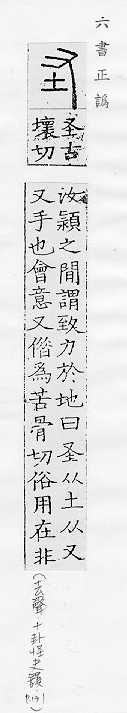 六書正譌
圣古
壞切
汝潁之閒謂致力於地曰圣从土从又
又手也會意又偕為苦骨切俗用在非
(去聲 十卦怪夬韻